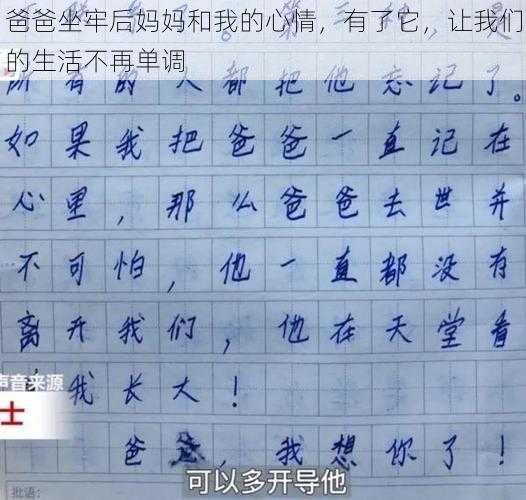 爸爸坐牢后妈妈和我的心情，有了它，让我们
的生活不再单调
所有的人都把他忘记了。
如果我把爸爸一直记在
心里，那么爸爸去世并
不可怕，他一直都没有
离开我们，他在天堂看
我长大！
声音来源
士
爸爸，我想你了！
可以多开导他
批语：